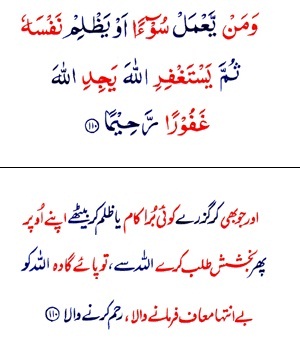 وَمَنْ يَّعْمَلْ سُوْٓءًا اَوْ يَظْلِمْ نَفْسَهٗ
ثُمَّ يَسْتَغْفِرِ اللهَ يَجِدِ اللهَ
غَفُوْرًا رَّحِيْمًا ﴿۱۱۰﴾
اور جو بھی کر گزرے کوئی بُرا کام یا ظلم کر بیٹھے اپنے اُوپر
پھر بخشش طلب کرے اللہ سے، تو پائے گا وہ اللہ کو
بے انتہا معاف فرمانے والا، رحم کرنے والا ﴿۱۱۰﴾